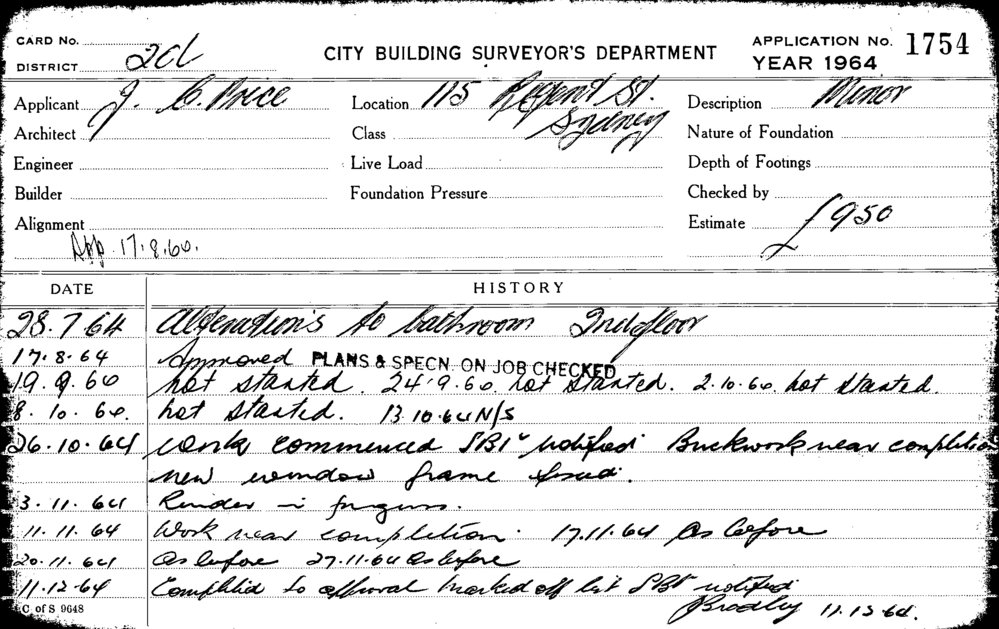 CARD No.
DISTRICT
CITY BUILDING SURVEYOR'S DEPARTMENT
APPLICATION No. 1754
YEAR 1964
Applicant J. C. Price
Location 115 Regent St. Sydney
Description Minor
Architect
Class
Nature of Foundation
Engineer
Live Load
Depth of Footings
Builder
Foundation Pressure
Checked by
Alignment
Estimate £950
App. 17.8.64.
DATE HISTORY
28.7.64 Alterations to bathroom 2nd floor
17.8.64 Approved PLANS & SPECN. ON JOB CHECKED
19.9.64 not started. 24.9.64. not started. 2.10.64. not started.
8.10.64. not started. 13.10.64 N/S
26.10.64 work commenced notified Brickwork near completion
new window frame fixed.
3.11.64 Render in progress.
11.11.64 Work near completion. 17.11.64 As before
20.11.64 As before 27.11.64 As before
11.12.64 Completed to approval marked off list notified
11.12.64.
C of S 9648